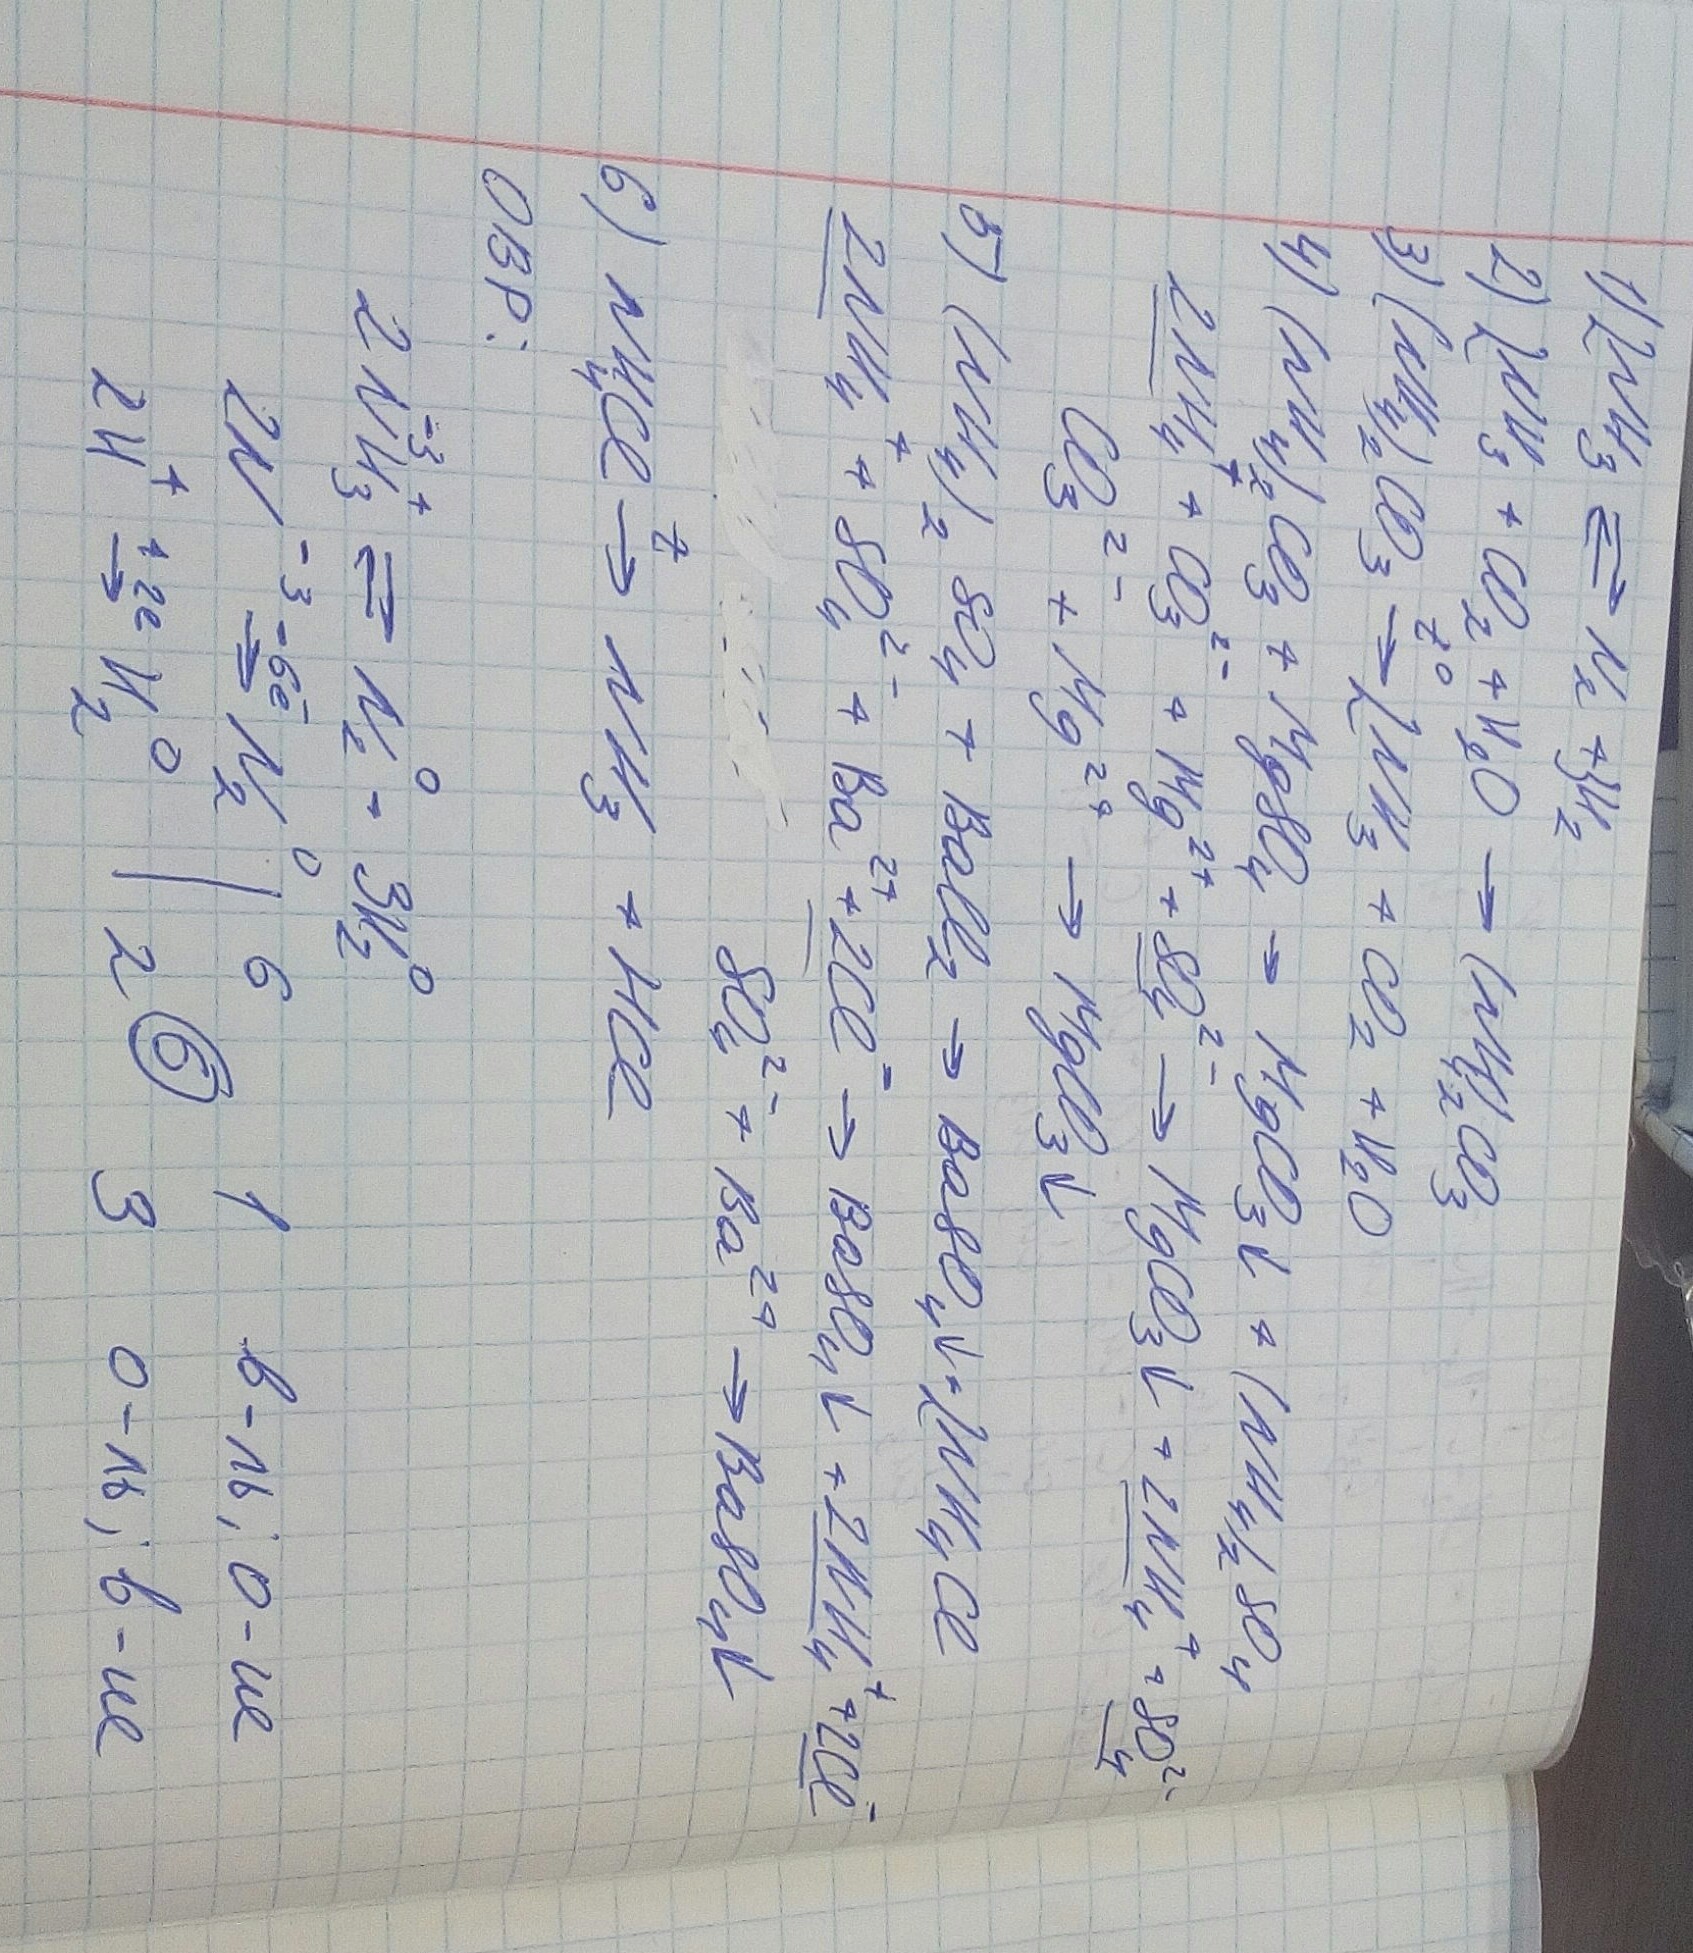 1) 2NH₃ ⇌ N₂ + 3H₂
2) 2NH₃ + CO₂ + H₂O → (NH₄)₂CO₃
3) (NH₄)₂CO₃ →(t⁰) 2NH₃ + CO₂ + H₂O
4) (NH₄)₂CO₃ + MgSO₄ → MgCO₃↓ + (NH₄)₂SO₄
2NH₄⁺ + CO₃²⁻ + Mg²⁺ + SO₄²⁻ → MgCO₃↓ + 2NH₄⁺ + SO₄²⁻
CO₃²⁻ + Mg²⁺ → MgCO₃↓
5) (NH₄)₂SO₄ + BaCl₂ → BaSO₄↓ + 2NH₄Cl
2NH₄⁺ + SO₄²⁻ + Ba²⁺ + 2Cl⁻ → BaSO₄↓ + 2NH₄⁺ + 2Cl⁻
SO₄²⁻ + Ba²⁺ → BaSO₄↓
6) NH₄Cl →(t) NH₃ + HCl
ОВР:
2N⁻³H₃⁺ ⇌ N₂⁰ + 3H₂⁰
2N⁻³ →(-6e⁻) N₂⁰ | 6 1 в-ль; о-ие
2H⁺ →(+2e) H₂⁰ | 2 (6) 3 о-ль; в-ие